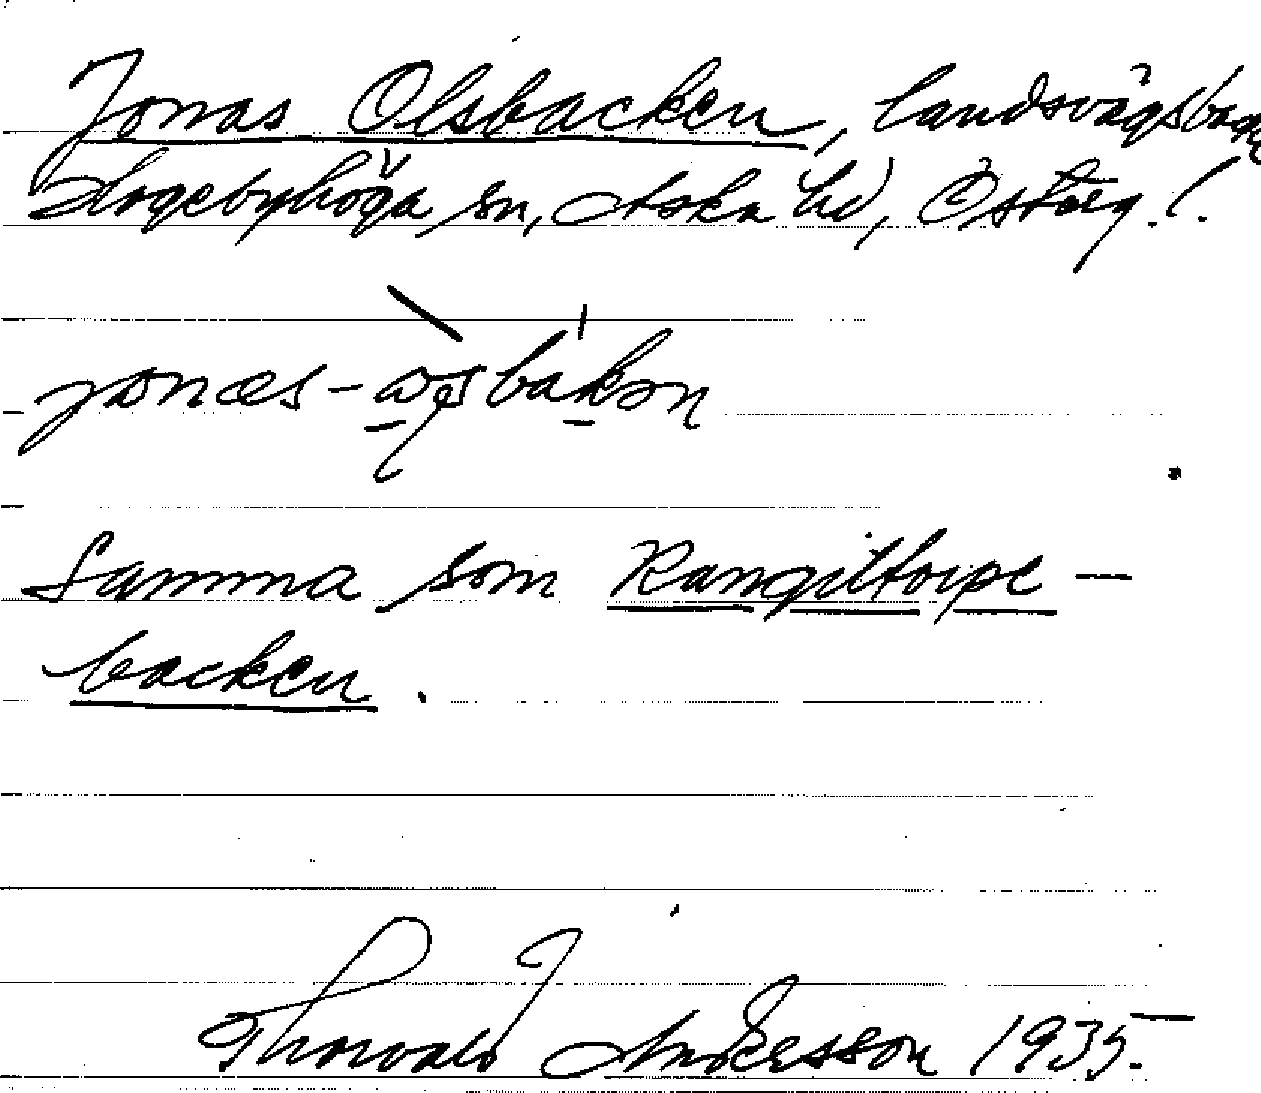 Jonas Olsbacken, landsvägsbacke
Hogebyhöga sn, Aska hd, Östерg.l.
Samma som Rangiltorpe-
backen.
Thorvald Andersson 1935.